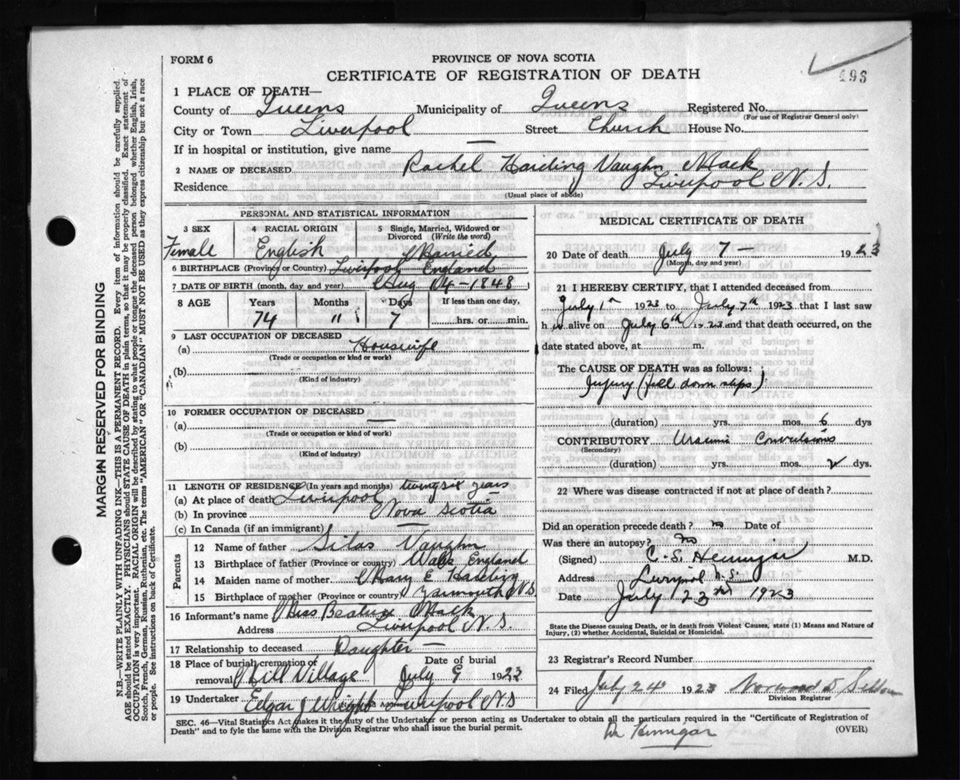 FORM 6
PROVINCE OF NOVA SCOTIA
CERTIFICATE OF REGISTRATION OF DEATH
496
1 PLACE OF DEATH—
County of Queens Municipality of Queens Registered No.
(For use of Registrar General only)
City or Town Liverpool Street Church House No.
If in hospital or institution, give name —
2 NAME OF DECEASED Rachel Harding Vaughn Mack
Residence Liverpool N.S.
(Usual place of abode)
PERSONAL AND STATISTICAL INFORMATION
3 SEX 4 RACIAL ORIGIN 5 Single, Married, Widowed or Divorced (Write the word)
Female English Married
6 BIRTHPLACE (Province or Country) Liverpool England
7 DATE OF BIRTH (month, day and year) Aug 1848
8 AGE Years Months Days If less than one day,
74 11 7 hrs. or min.
9 LAST OCCUPATION OF DECEASED
(a) Housewife
(Trade or occupation or kind of work)
(b)
(Kind of industry)
10 FORMER OCCUPATION OF DECEASED
(a) —
(Trade or occupation or kind of work)
(b)
(Kind of industry)
11 LENGTH OF RESIDENCE (In years and months) years
(a) At place of death Liverpool
(b) In province Nova Scotia
(c) In Canada (if an immigrant) —
Parents
12 Name of father Silas Vaughn
13 Birthplace of father (Province or country) Wales England
14 Maiden name of mother Mary E Harding
15 Birthplace of mother (Province or country) Yarmouth N.S.
16 Informant's name Miss Beatrice Mack
Address Liverpool N.S.
17 Relationship to deceased Daughter
18 Place of burial, cremation or removal Mill Village Date of burial July 9 1923
19 Undertaker Edgar J Wright Liverpool N.S
MEDICAL CERTIFICATE OF DEATH
20 Date of death July 7 — 1923
(Month, day and year)
21 I HEREBY CERTIFY, that I attended deceased from
July 1st 1923 to July 7th 1923 that I last saw
h alive on July 6th 1923 and that death occurred, on the
date stated above, at m.
The CAUSE OF DEATH was as follows:
Injury (fell down steps)
(duration) yrs. mos. 6 dys
CONTRIBUTORY Uraemic Convulsions
(Secondary)
(duration) yrs. mos. 2 dys.
22 Where was disease contracted if not at place of death?
Did an operation precede death? no Date of
Was there an autopsy? no
(Signed) C. S. M.D.
Address Liverpool N.S.
Date July 1923
State the Disease causing Death, or in death from Violent Causes, state (1) Means and Nature of Injury, (2) whether Accidental, Suicidal or Homicidal.
23 Registrar's Record Number
24 Filed July 24 1923
Division Registrar
SEC. 46—Vital Statistics Act makes it the duty of the Undertaker or person acting as Undertaker to obtain all the particulars required in the "Certificate of Registration of
Death" and to fyle the same with the Division Registrar who shall issue the burial permit. (OVER)
MARGIN RESERVED FOR BINDING
N.B.—WRITE PLAINLY WITH UNFADING INK—THIS IS A PERMANENT RECORD. Every item of information should be carefully supplied.
AGE should be stated EXACTLY. PHYSICIANS should STATE CAUSE OF DEATH in plain terms, so that it may be properly classified. Exact statement of
OCCUPATION is very important. RACIAL ORIGIN will be described by stating to what people or tongue the deceased person belonged whether English, Irish,
Scotch, French, German, Russian, Ruthenian, etc. The terms "AMERICAN" or "CANADIAN" MUST NOT BE USED as they express citizenship but not a race
or people. See instructions on back of Certificate.